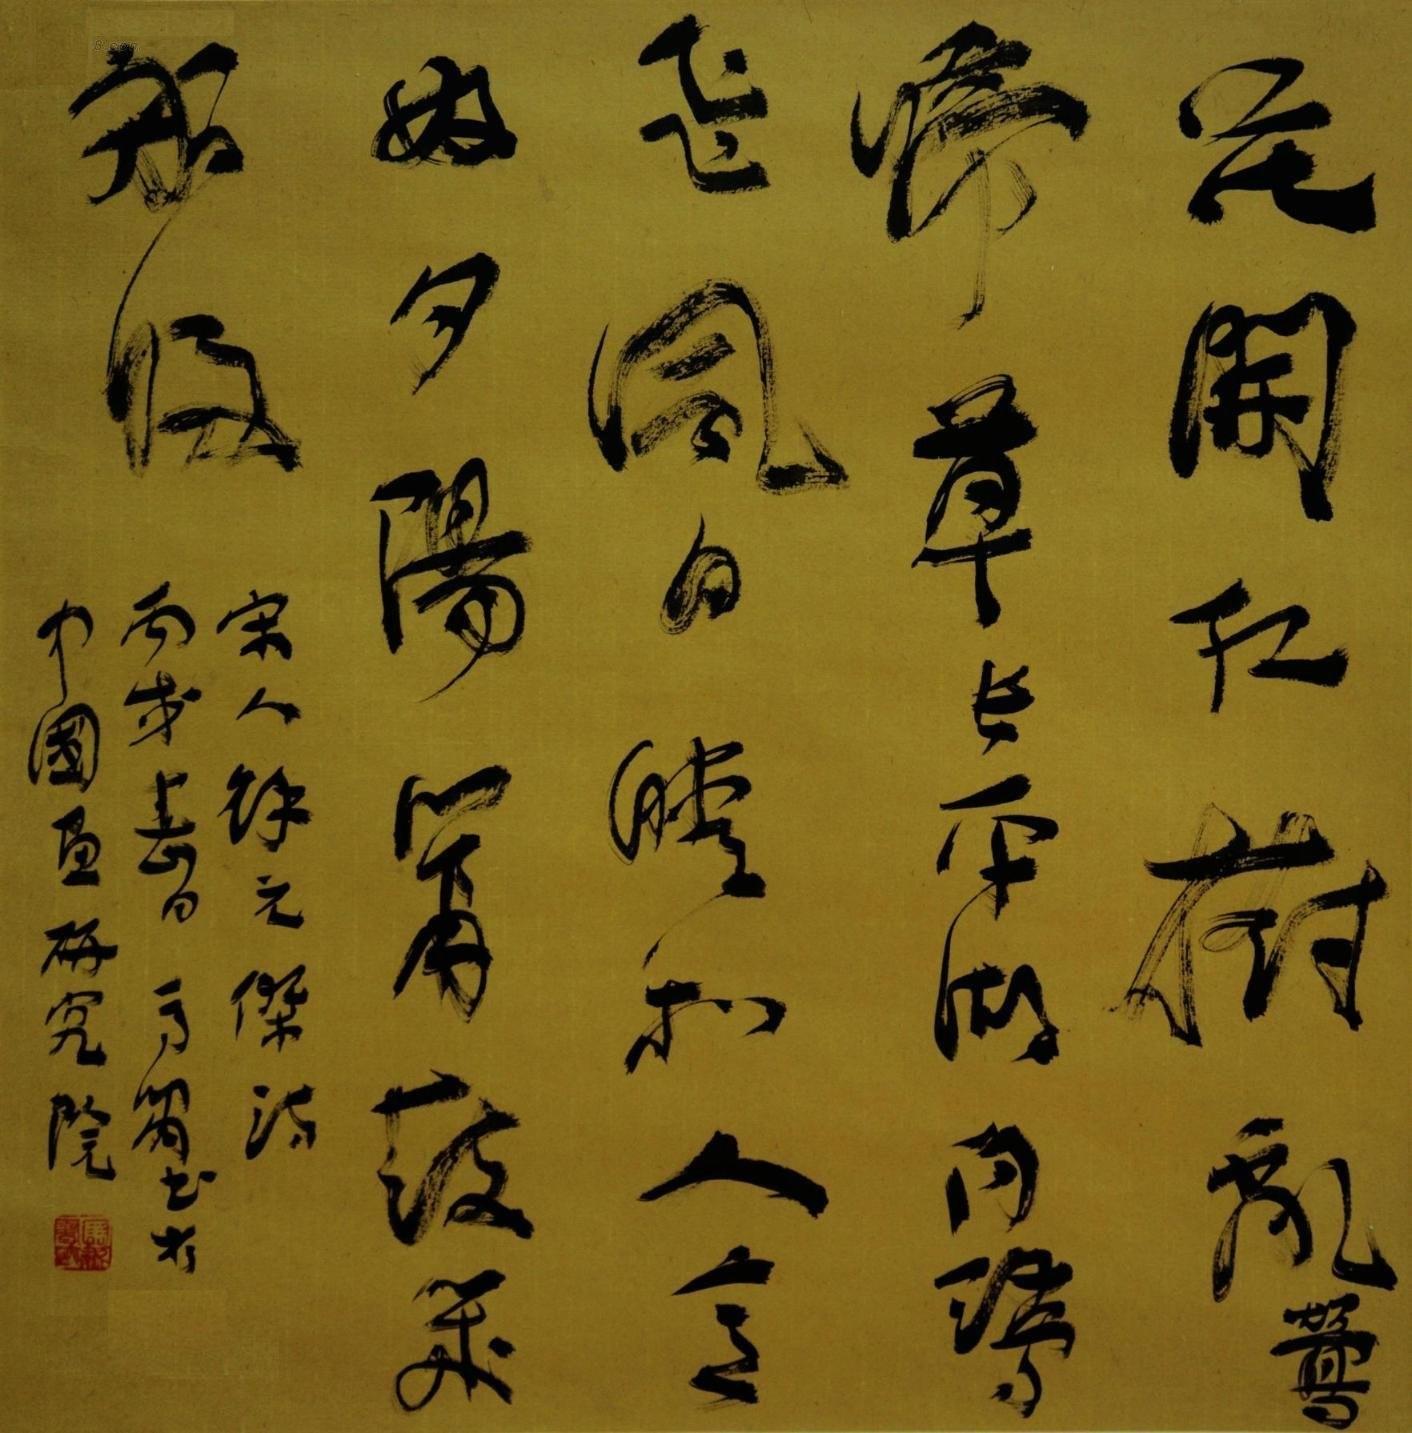 花開紅樹亂鶯
啼草長平湖白鷺
飛風日晴和人意
好夕陽簫鼓幾
船歸
宋人徐元傑詩
丙戌春日書於
中國畫研究院